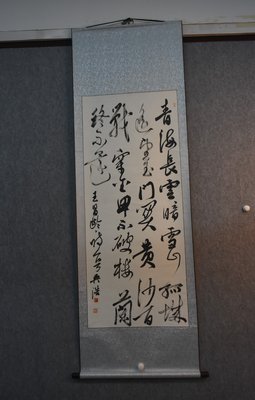 青海長雲暗雪山孤城
遙望玉門關黃沙百
戰穿金甲不破樓蘭
終不還
王昌齡詩